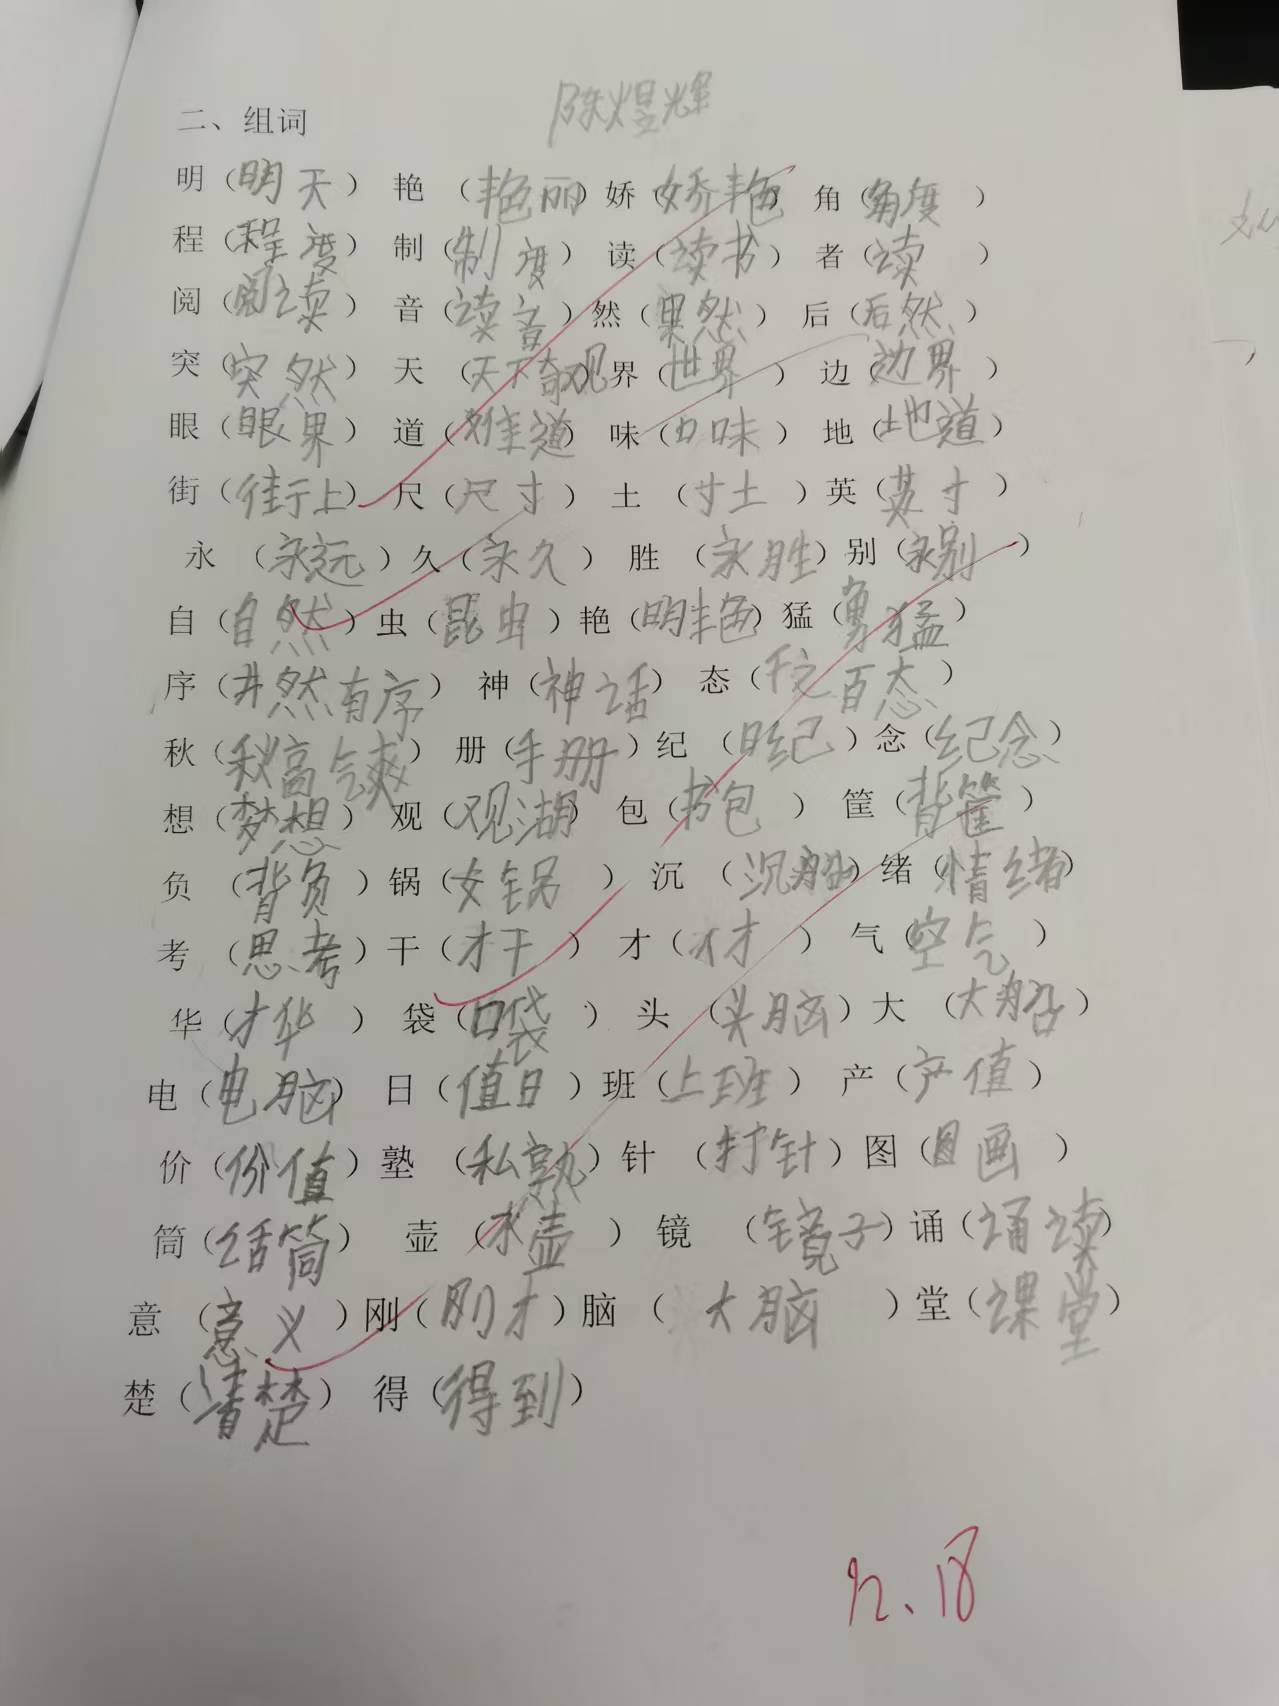 陈煜辉
二、组词
明（明天） 艳（艳丽）娇（娇艳） 角（角度）
程（程度） 制（制度） 读（读书） 者（读 ）
阅（阅读） 音（读音）然（果然） 后（后然）
突（突然） 天（天下奇观）界（世界） 边（边界）
眼（眼界） 道（难道） 味（口味） 地（地道）
街（街上） 尺（尺寸） 土（寸土）英（英寸）
永（永远）久（永久） 胜（永胜）别（永别）
自（自然）虫（昆虫）艳（明艳）猛（勇猛）
序（井然有序） 神（神话） 态（千变百态）
秋（秋高气爽） 册（手册）纪（世纪）念（纪念）
想（梦想） 观（观湖） 包（书包） 筐（背筐）
负（背负）锅（铁锅） 沉（沉船）绪（情绪）
考（思考）干（才干） 才（才） 气（空气）
华（才华） 袋（口袋） 头（头脑）大（大船）
电（电脑） 日（值日）班（上班） 产（产值）
价（价值）塾（私塾）针（打针）图（图画）
筒（话筒） 壶（水壶） 镜（镜子）诵（诵读）
意（意义）刚（刚才）脑（大脑）堂（课堂）
楚（清楚） 得（得到）
12.18